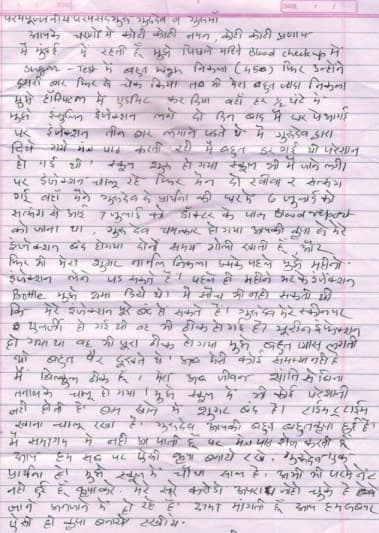 परमपूजनीय परमसद्गुरु गुरुदेव व गुरुमाँ
आपके चरणों में कोटी कोटी नमन, कोटी कोटी प्रणाम
मैं मुंबई में रहती हूँ मुझे पिछले महिने Blood checkup में
sugar - Test में बहुत निकला (450) फिर उन्होंने
दूसरी बार फिर से चेक किया तब भी मेरा बहुत ज्यादा निकला
मुझे हॉस्पिटल में एडमिट कर दिया वहाँ हर ½ घंटे में
मुझे इंसुलिन इंजेक्शन लगे दो दिन बाद मैं घर पे आई
पर इंजेक्शन तीन बार लगाने पडते थे मैं गुरुदेव द्वारा
दिये गये मंत्र पाठ करती रही मैं बहुत डर गई थी परेशान
हो गई थी। स्कूल शुरू हो गया स्कूल भी मैं जाने लगी
पर इंजेक्शन चालू रहे फिर मैंने दो रवीवार सत्संग
गई वहाँ मैंने गुरुदेव से प्रार्थना की घर पे 6 जुलाई को
सत्संग से आई 7 जुलाई को डॉक्टर के पास Blood report
को जाना था, गुरुदेव चमत्कार हो गया आपकी कृपा से मेरे
इंजेक्शन बंद हो गया दोनों समय गोली खाती हूँ और
फिर भी मेरा शुगर नार्मल निकला इसके पहले मुझे महीनों
इंजेक्शन लेने पड सकते हैं। पहले ही महीने भर के इंजेक्शन
Bottle मुझे थमा दिये थे। मैं सोच भी नहीं सकती थी
कि मेरे इंजेक्शन पूरे बंद हो सकते हैं। गुरुदेव मेरे स्कीन पर
एलर्जी हो गई थी वह भी ठीक हो गई है।
हो गया था वह भी पूरा ठीक हो गया मुझे बहुत प्यास लगती
थी बहुत पैर दुखते थे। अब मेरी कोई समस्या नहीं है
मैं बिल्कुल ठीक हूँ। मेरा अब जीवन शांति से बिना
तनाव के चालू हो गया। मुझे स्कूल में भी कोई परेशानी
नहीं होती है। बस खाने में शुगर बंद है। टाईम टू टाईम
खाना चालू रखा है। गुरुदेव आपकी बहुत बहुत कृपा हुई है।
मैं समागम में नहीं आ पाती हूँ पर मंत्र पाठ रोज करती हूँ
आप हम सब पर ऐसी कृपा बनाये रखे। गुरुदेव एक
प्रार्थना है। मुझे स्कूल में चौथा साल है। अभी भी परमनेंट
नहीं हुई हूँ कृपा करे। मेरे अपराध नहीं चुके हैं
जाने अनजाने में हो रहे हैं। क्षमा मांगती हूँ आप हम सब पर
ऐसे ही कृपा बनाये रखीये।